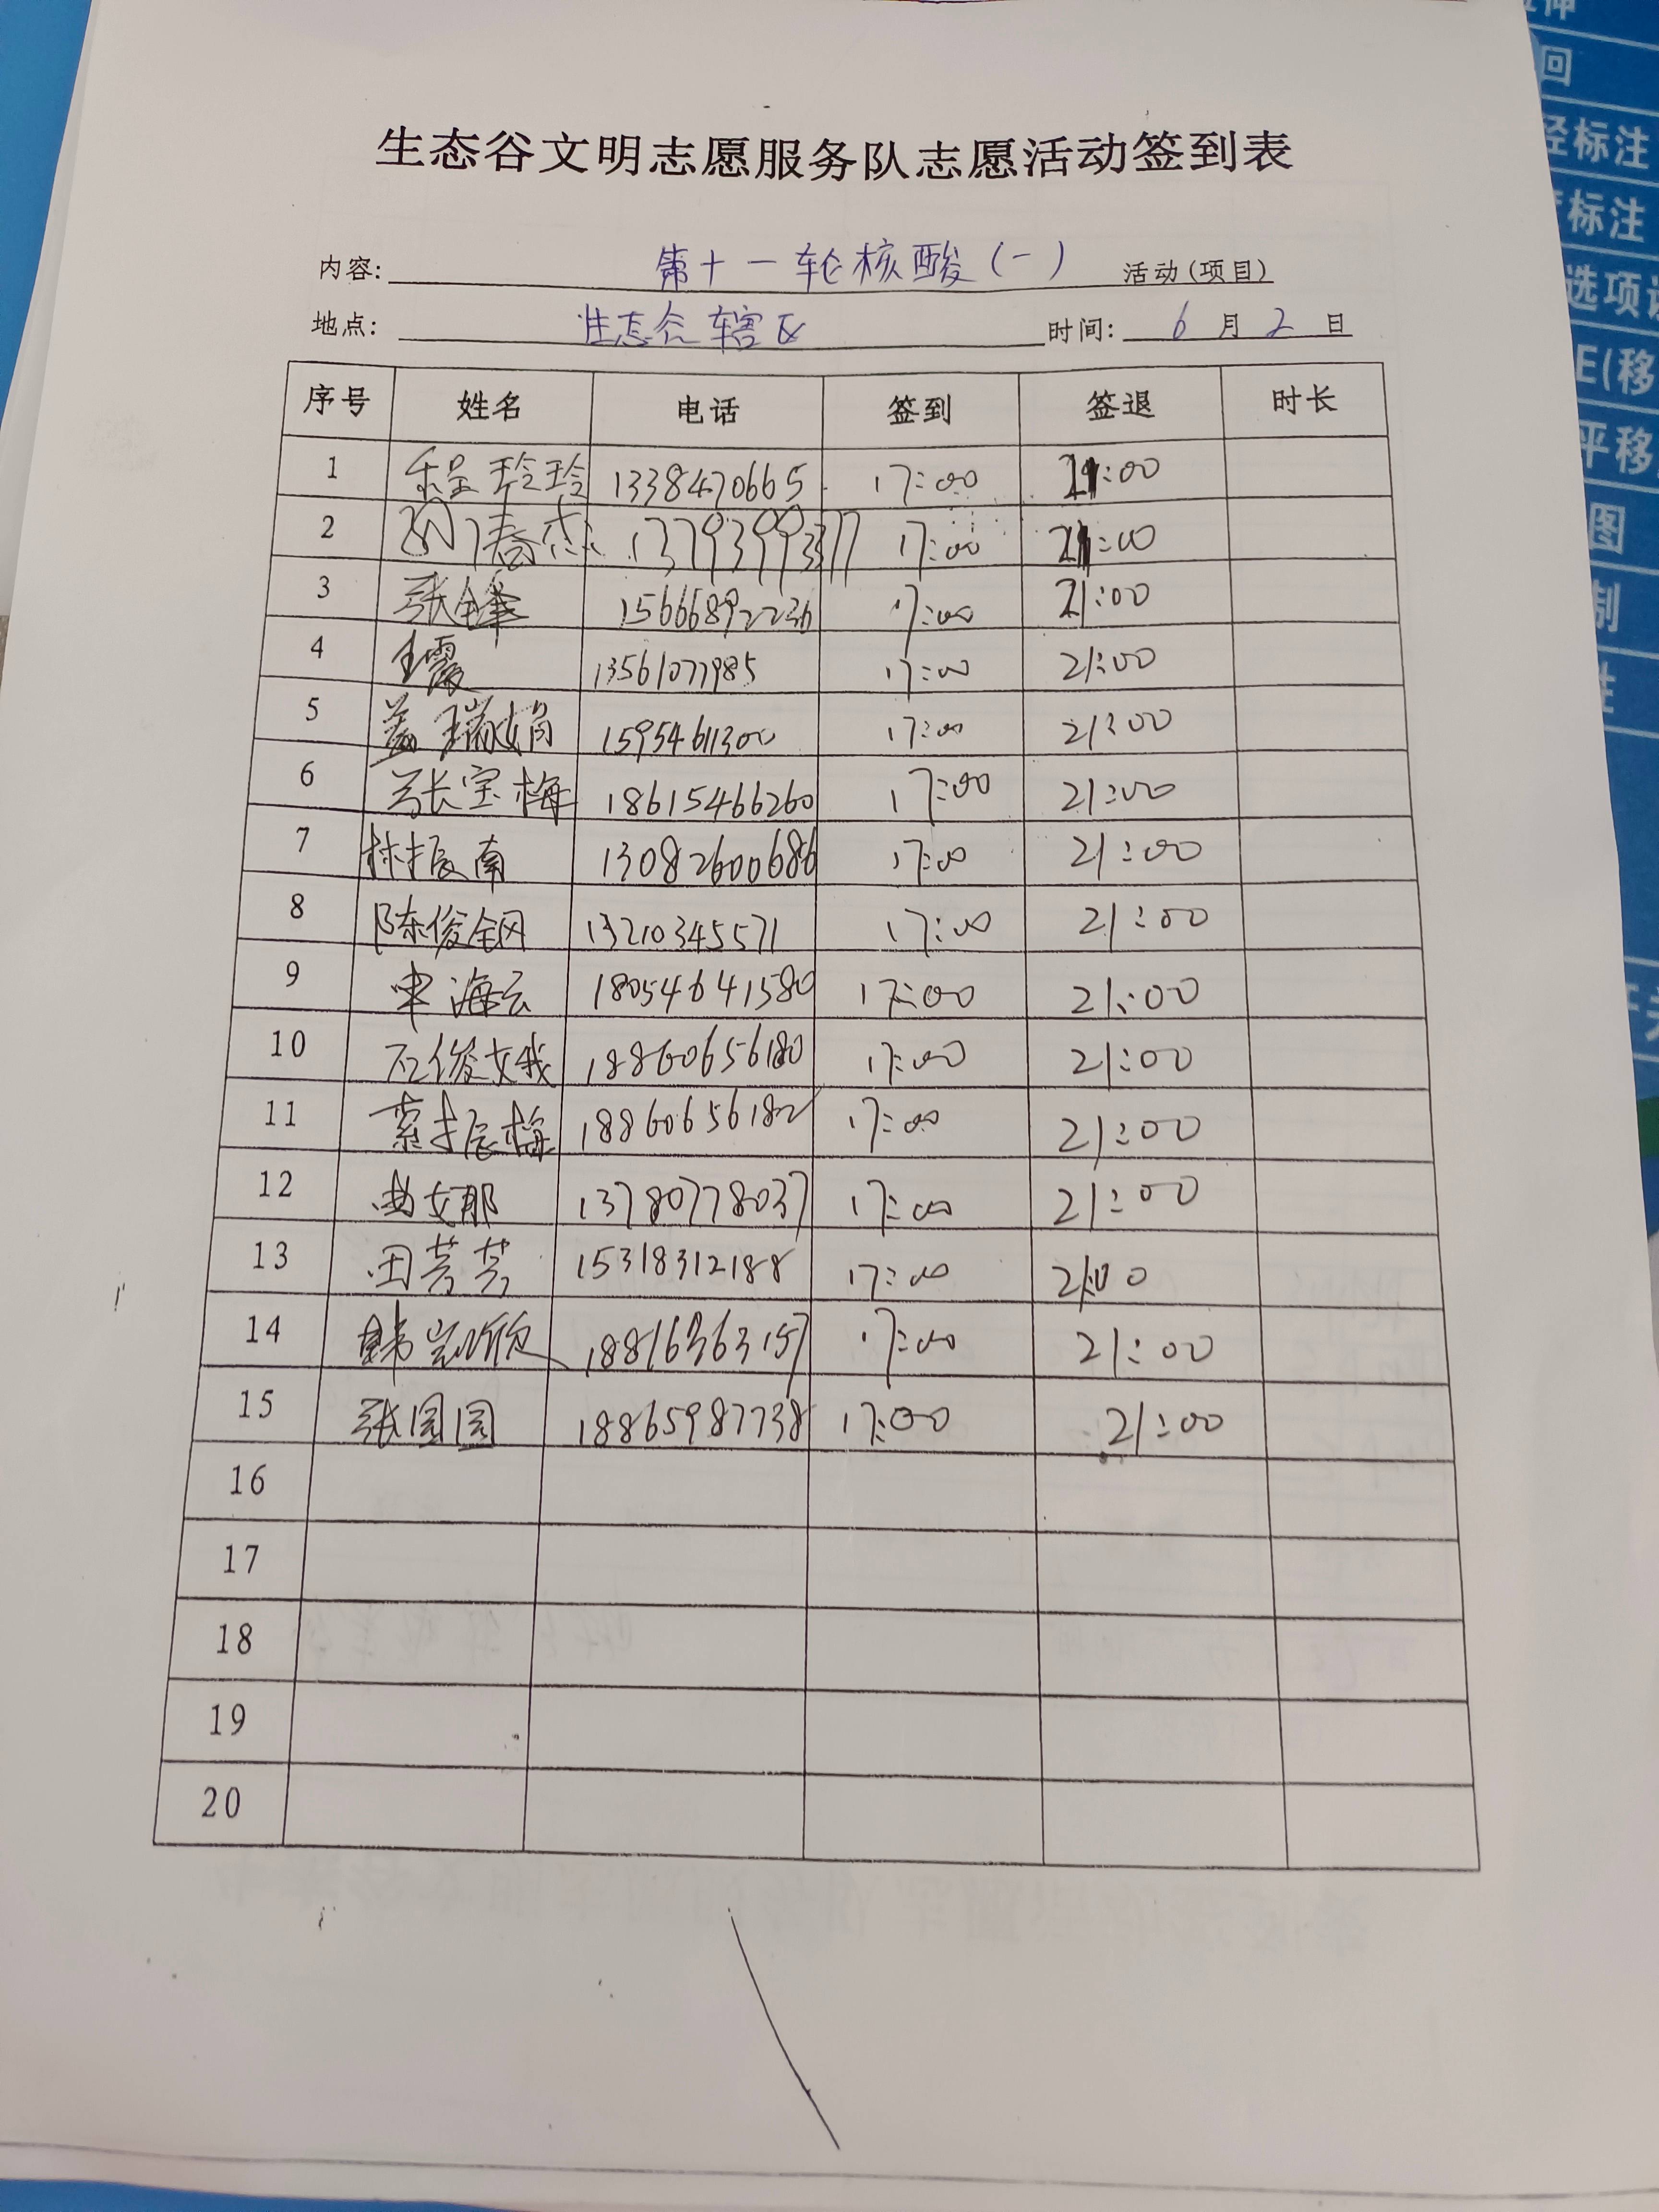 生态谷文明志愿服务队志愿活动签到表
内容: 第十一轮核酸(一) 活动(项目)
地点: 生态谷辖区 时间: 6月2日
序号 姓名 电话 签到 签退 时长
1 玲玲 1338470665 17:00 21:00
2 春杰 17:00 21:00
3 张锋 15666892236 17:00 21:00
4 王霞 13561077985 17:00 21:00
5 盖瑞娟 15954611300 17:00 21:00
6 张宝梅 18615466260 17:00 21:00
7 林振南 13082600686 17:00 21:00
8 陈俊钢 13210345571 17:00 21:00
9 海云 18054641580 17:00 21:00
10 石俊娥 18860656180 17:00 21:00
11 索振梅 18860656182 17:00 21:00
12 曲娜 13780778037 17:00 21:00
13 田芳芳 15318312188 17:00 21:00
14 韩 18816363157 17:00 21:00
15 张圆圆 18865987738 17:00 21:00
16
17
18
19
20
回
径标注
标注
选项
E(移
平移
图
制
性